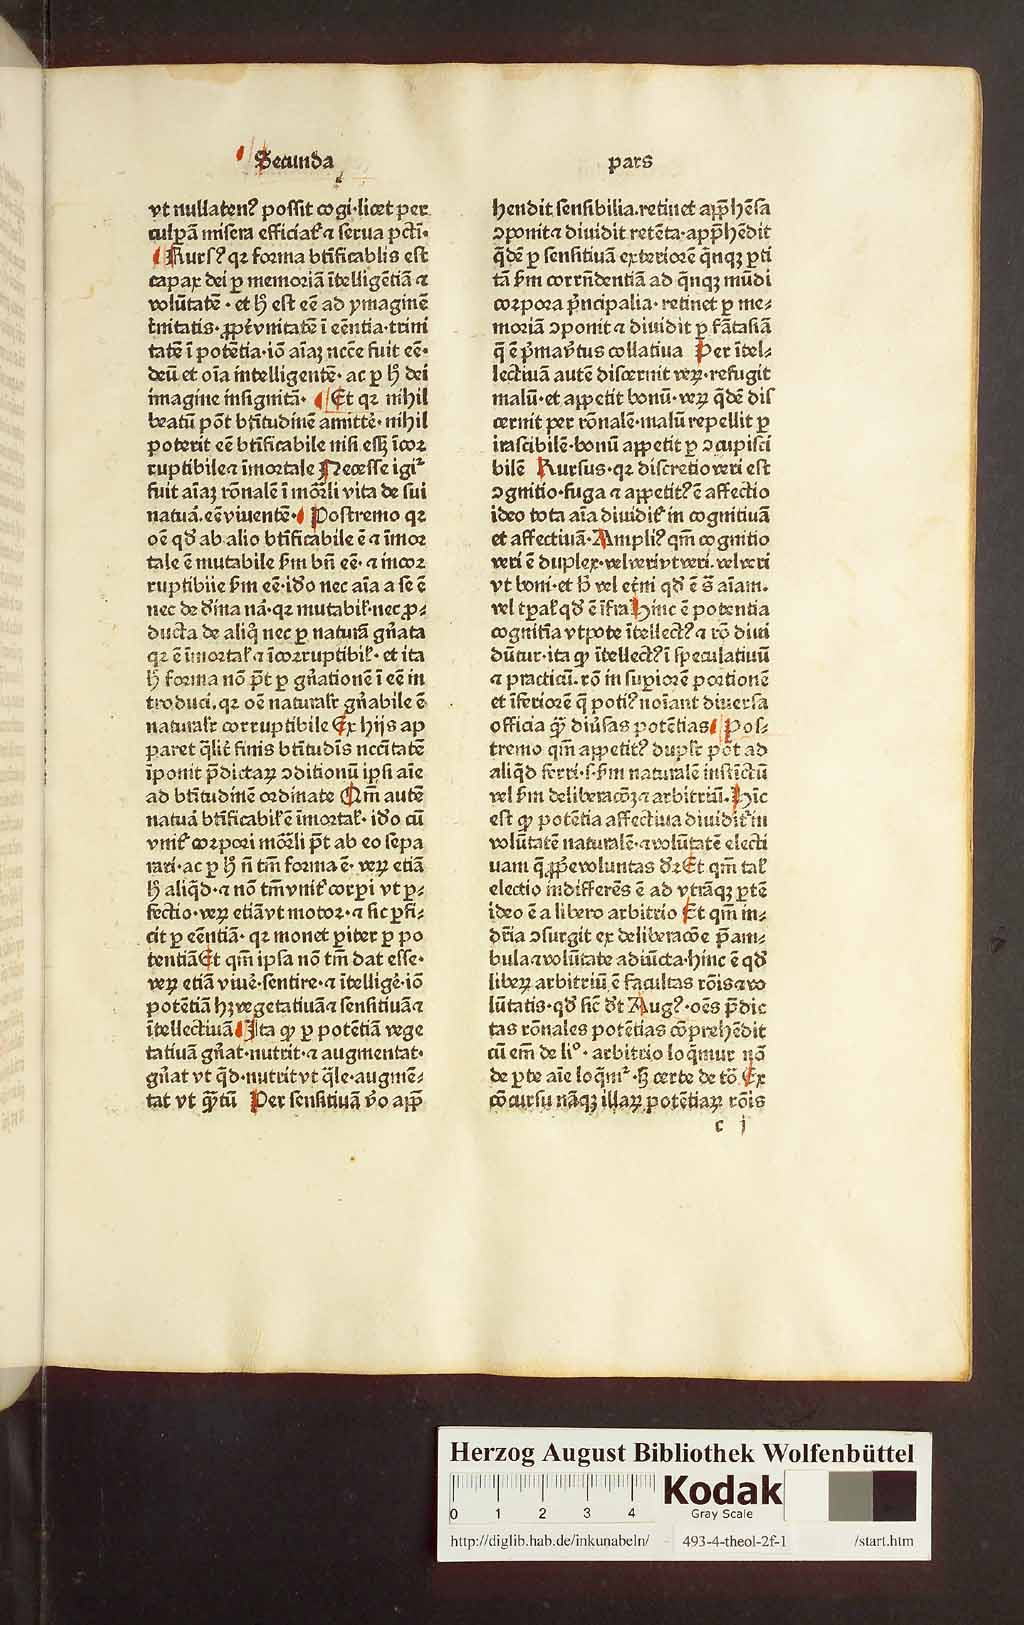 Secunda pars
vt nullatenꝰ possit cogi·licet per
culpā misera efficiat᷑ ⁊ serua pcti·
Rursꝰ qꝛ forma btificablis est
capax dei ꝑ memoriā ītelligētiā ⁊
volūtatē· et hͦ est eē ad ymaginē
tnitatis· ꝓpt vnitatē ī eēntia·trini
tatē ī potētia·iō aīaꝫ ncce fuit eē·
deū et oīa intelligentē· ac ꝑ hͦ dei
imagine insignitā· Et qꝛ nihil
beatū pōt btitudinē amittē· nihil
poterit eē btificabile nisi essꝫ īcoꝛ
ruptibile⁊ īmortale Necesse igiᷣ
fuit aīaꝫ rōnalē ī moꝛli vita de sui
natuā. eē viuentē· Postremo qꝛ
oē qđ ab alio btificabile ē ⁊ īmoꝛ
tale ē mutabile ẜm bn̄ eē· ⁊ incoꝛ
ruptibiie ẜm eē· idō nec aīa a se ē
nec de dina nā· qꝛ mutabiƚ· nec ꝓ⸗
ducta de aliq̄ nec ꝑ naturā gn̄ata
qꝛ ē īmoꝛtaƚ ⁊ īcoꝛruptibiƚ· et ita
hͦ forma nō pt̄ ꝑ gn̄ationē ī eē in
troduci, qꝛ oē naturalr gn̄abile ē
naturalr corruptibile Ex hijs ap
paret qƚit finis btitudīs nccītatē
īponit p̄dictaꝝ ↄditionū ipsi aīe
ad btitudinē ordinate Qm̄ autē
natuā btificabiƚ ē īmortaƚ· idō cū
vnit᷑ corpoꝛi moꝛli pt̄ ab eo sepa
rari·ac ꝑ hͦ n̄ tm̄ forma ē· veꝝ etiā
hͦ aliq̄d·⁊ nō tm̄ vnit᷑ corꝑi vt ꝑ⸗
fectio·veꝝ etiā vt motor·⁊ sic ꝑfi⸗
cit ꝑ eēntiā· qꝛ monet ꝑiter ꝑ po
tentiā Et qm̄ ipsa nō tm̄ dat esse·
veꝝ etiā viue·sentire·⁊ ītellige·iō
potētiā hꝫ vegetatiuā⁊ sensitiuā⁊
ītellectiuā Ita ꝙ ꝑ potētiā vege
tatiuā gn̄at·nutrit·⁊ augmentat·
gn̄at vt q̄d·nutrit vt q̄le·augmē⸗
tat vt q̄ꝫtū Per sensitiuā ṽo app̄
hendit sensibilia.retinet app̄hēsa
ↄponit⁊ diuidit retēta·app̄hēdit
q̄dē ꝑ sensitiuā exteriorē q̄nqꝫ ꝑti
tā ẜm corrn̄dentiā ad q̄nqꝫ mūdi
corpora pͥncipalia· retinet ꝑ me⸗
moriā ↄponit ⁊ diuidit ꝑ fātasiā
q̄ ē pͥma vͥtus collatiua Per ītel⸗
lectiuā autē discernit veꝝ·refugit
malū·et appetit bonū·veꝝ q̄dē dis
cernit per rōnalē·malū repellit ꝑ
irascibilē·bonū appetit ꝑ ↄcupisci
bilē Rursus·qꝛ discretio veri est
ↄgnitio·fuga ⁊ appetitꝰ ē affectio
ideo tota aīa diuidit᷑ in cognitiuā
et affectiuā· Ampliꝰ qm̄ cognitio
veri ē duplex·vel veri vt veri. vel veri
vt boni·et hͦ vel etn̄i qđ ē s̄ aīam.
vel tꝑaƚ qđ ē īfra Hinc ē potentia
cognitīa vtpote ītellectꝰ ⁊ rō diui
dūtur·ita ꝙ ītellectꝰ ī speculatiuū
⁊ practicū.rō in suꝑiorē portionē
et īferiorē q̄ potiꝰ noīant diuersa
officia q̄ꝫ diūsas potētias Pos⸗
tremo qm̄ appetitꝰ duplr pōt ad
aliq̄d ferri·s·ẜm naturalē instīctū
vel ẜm deliberacōꝫ ⁊ arbitriū. Hīc
est ꝙ potētia affectiua diuidit᷑ in
volūtatē naturalē·⁊ volūtatē electi
uam q̄ ꝓpe voluntas dr Et qm̄ taƚ
electio indifferēs ē ad vtrāqꝫ ꝑtē
ideo ē a libero arbitrio Et qm̄ in⸗
dr̄ia ↄsurgit ex deliberacōe p̄am⸗
bula ⁊ volūtate adiūcta·hinc ē qđ
libeꝝ arbitriū ē facultas rōis ⁊ vo
lūtatis·qđ sic dt Augꝰ·oēs p̄dic
tas rōnales potētias cōprehēdit
cū em̄ de liͦ· arbitrio loq̄mur nō
de ꝑte aīe loq̄mᷣ·sꝫ certe de tō Ex
cōcursu nāqꝫ illaꝝ potētiaꝝ rōis
c j
Herzog August Bibliothek Wolfenbüttel
0 1 2 3 4
Kodak
Gray Scale
http://diglib.hab.de/inkunabeln/ 493-4-theol-2f-1 /start.htm